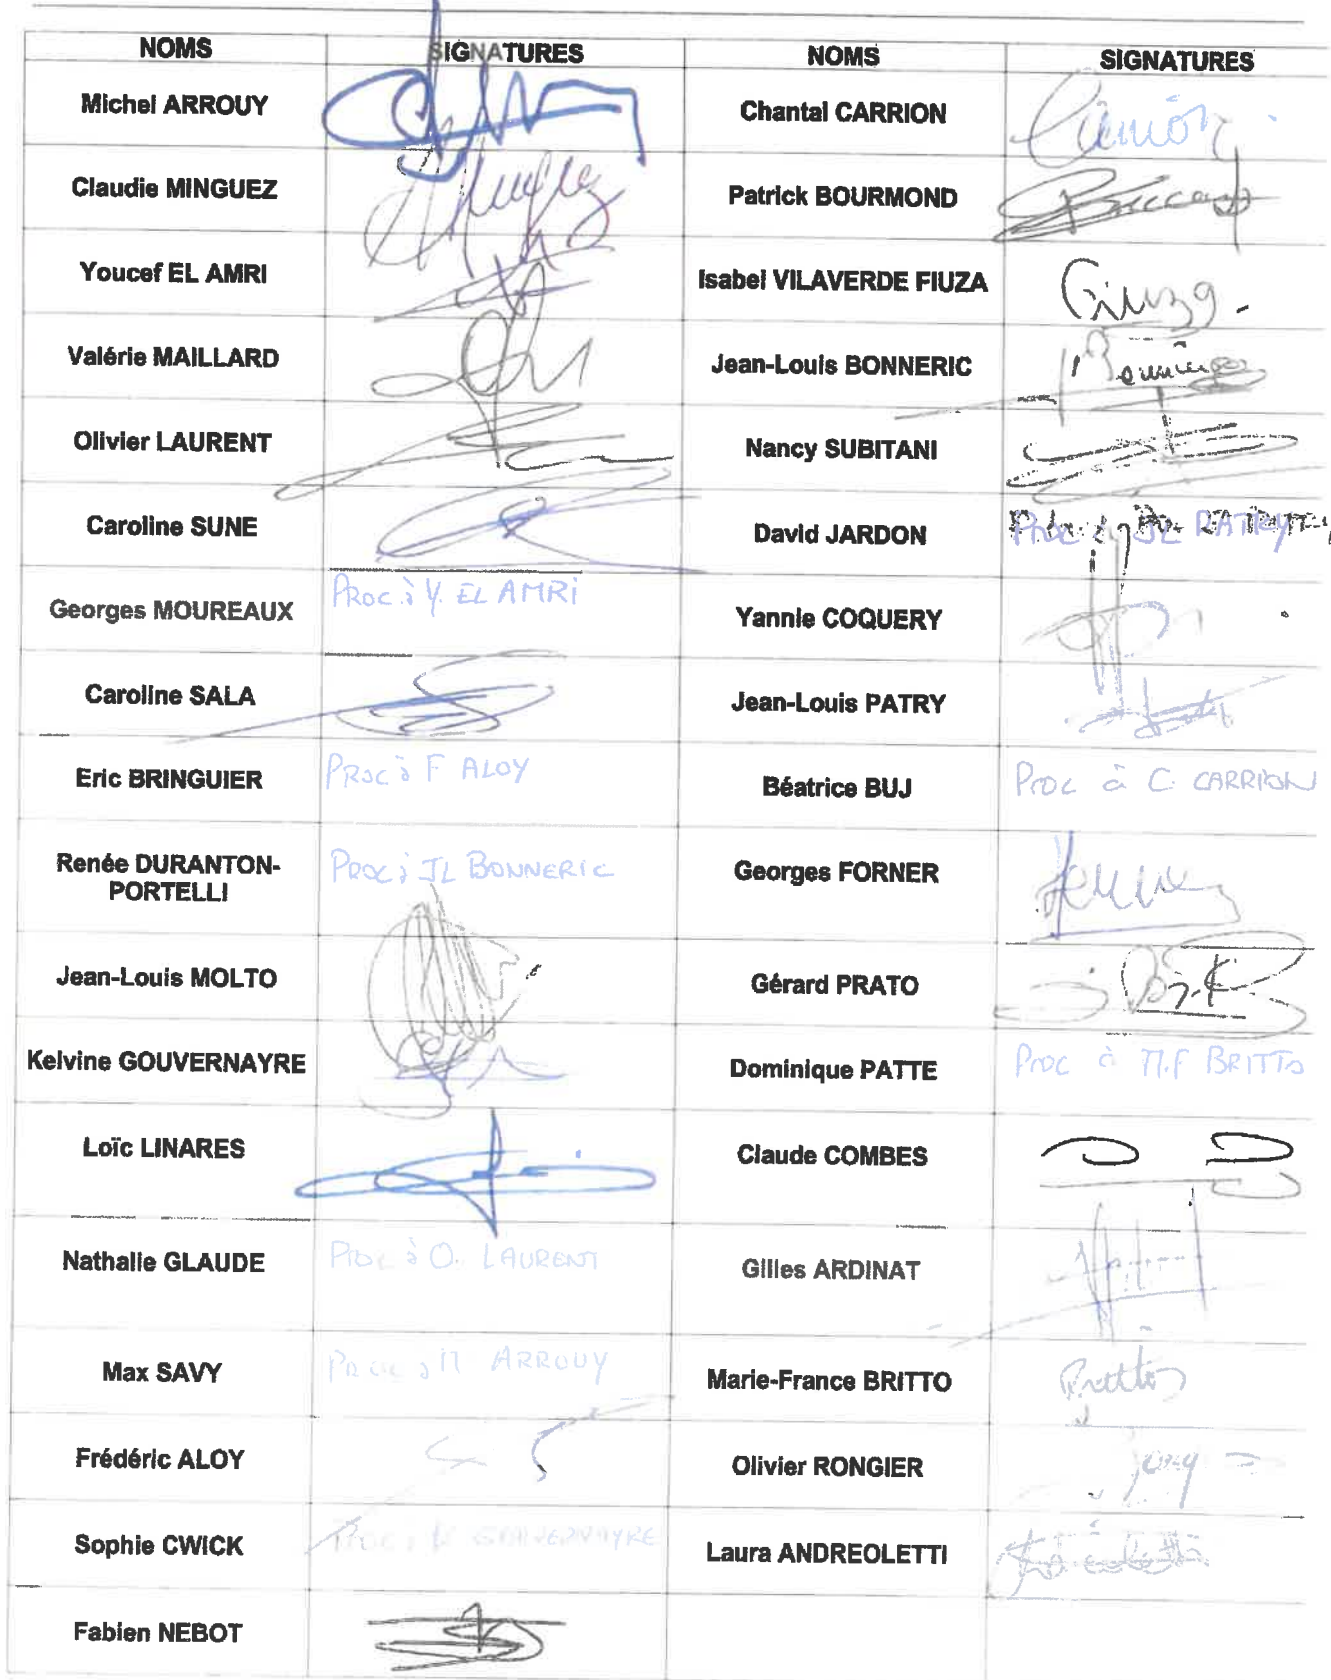 NOMS SIGNATURES NOMS SIGNATURES
Michel ARROUY Chantal CARRION
Claudie MINGUEZ Patrick BOURMOND
Youcef EL AMRI Isabel VILAVERDE FIUZA Fiuza.
Valérie MAILLARD Jean-Louis BONNERIC
Olivier LAURENT Nancy SUBITANI
Caroline SUNE David JARDON Proc à JL PATRY
Georges MOUREAUX PROC à Y. EL AMRI Yannie COQUERY
Caroline SALA Jean-Louis PATRY
Eric BRINGUIER PROC à F ALOY Béatrice BUJ PROC à C. CARRION
Renée DURANTON-
PORTELLI PROC à JL BONNERIC Georges FORNER
Jean-Louis MOLTO Gérard PRATO
Kelvine GOUVERNAYRE Dominique PATTE Proc à M.F BRITTO
Loïc LINARES Claude COMBES
Nathalie GLAUDE PROC à O. LAURENT Gilles ARDINAT
Max SAVY PROC à M ARROUY Marie-France BRITTO Britto
Frédéric ALOY Olivier RONGIER
Sophie CWICK PROC à K GOUVERNAYRE Laura ANDREOLETTI
Fabien NEBOT